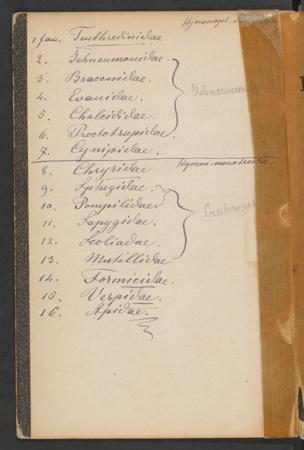 1 fam. Tenthredinidae
2. Ichneumonidae.
3. Braconidae.
4. Evanidae.
5. Chalcididae.
6. Proctotrupidae.
7. Cynipidae.
8. Chrysidae Hymen. monotrocha.
9. Sphegidae
10. Pompilidae
11. Sapygidae.
12. Scoliadae.
13. Mutillidae
14. Formicidae.
15. Vespidae.
16. Apidae.